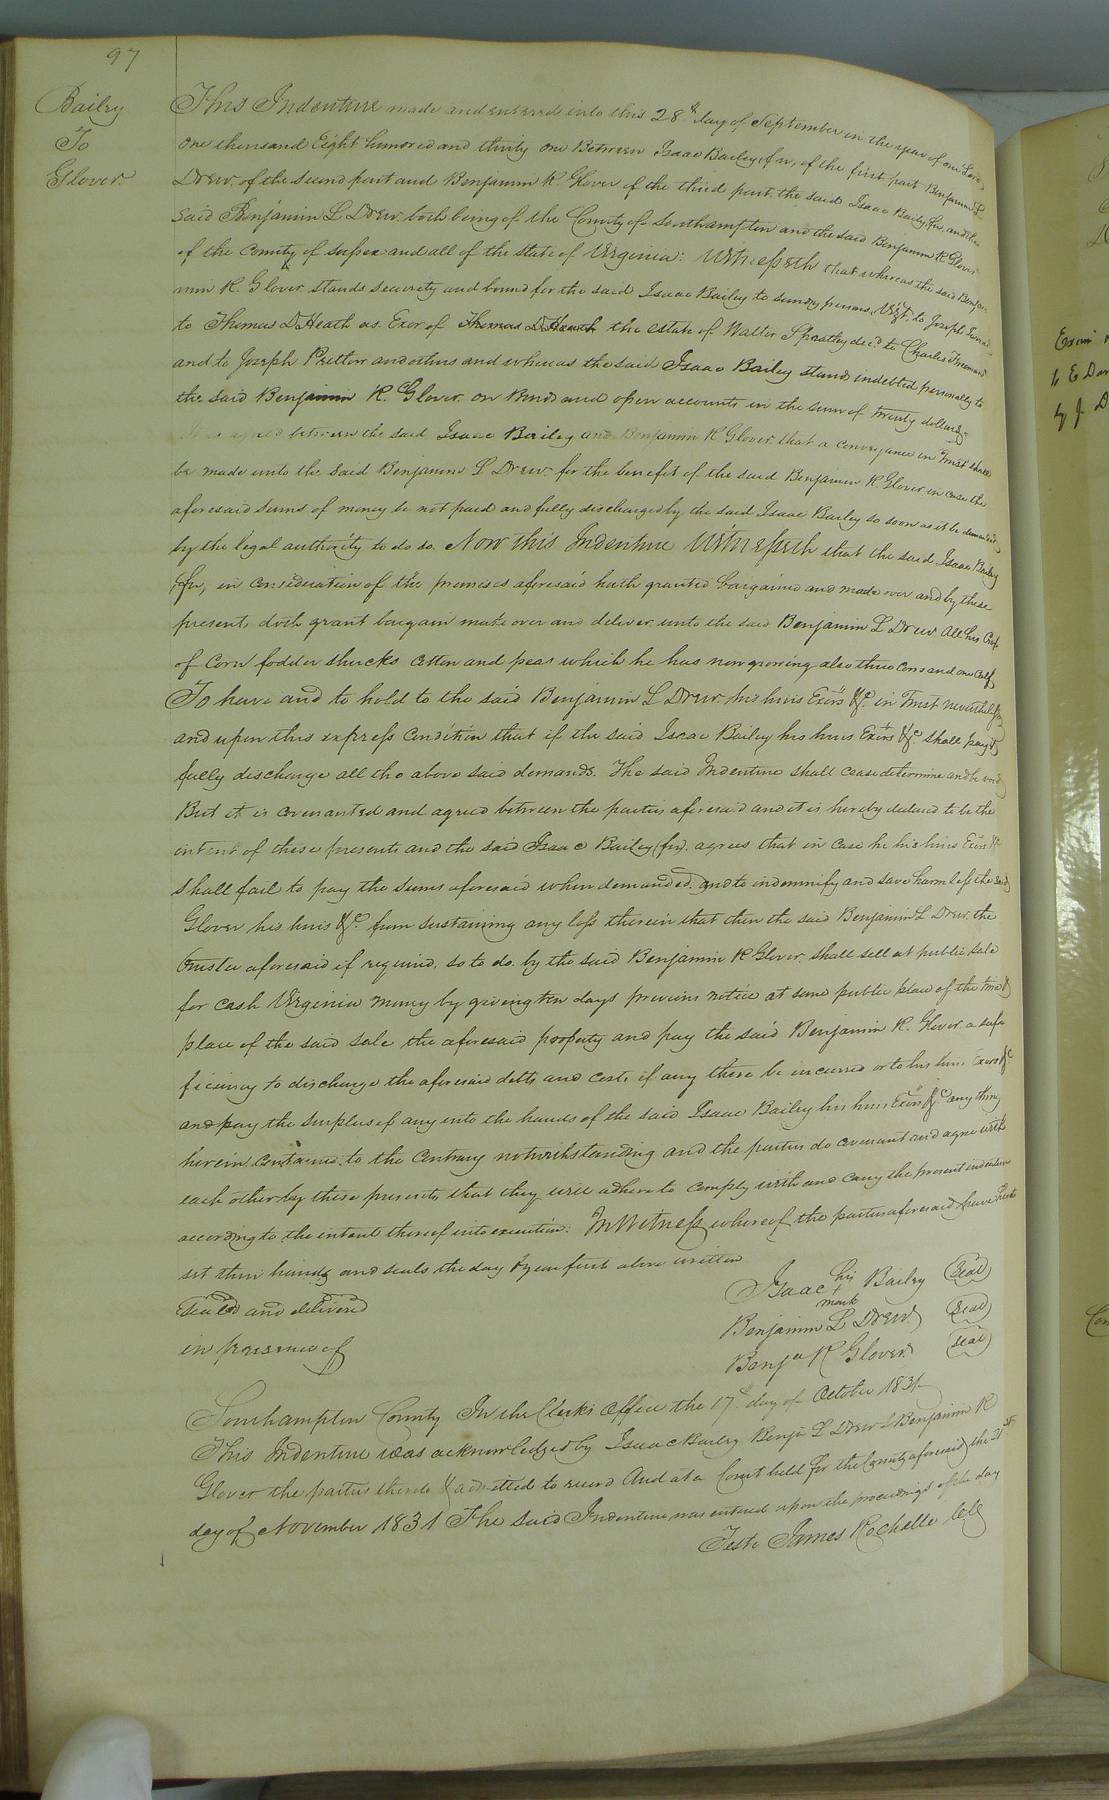 97
Bailey
To
Glover
This Indenture made and entered into this 28th day of September in the year of our Lord
one thousand Eight hundred and thirty one Between Isaac Bailey (fn), of the first part Benjamin L
Drew of the second part and Benjamin R. Glover of the third part. the said Isaac Baily (fn), and the
said Benjamin L Drew both being of the County of Southampton and the said Benjamin R Glover
of the County of Sussex and all of the State of Virginia: Witnesseth that whereas the said Benja-
min R. Glover stands security and bound for the said Isaac Bailey to sundry persons. Vizt. to Joseph
to Thomas D Heath as Exor of Thomas D Heath the estate of Walter Spratley decd. to Charles Freeman
and to Joseph Pretlow and others and whereas the said Isaac Bailey stands indebted personally to
the said Benjamin R. Glover on Bonds and open accounts in the sum of twenty dollars
It is agreed between the said Isaac Bailey and Benjamin R Glover that a conveyance in Trust
be made unto the said Benjamin L Drew for the benefit of the said Benjamin R. Glover in case the
aforesaid sums of money be not paid and fully discharged by the said Isaac Bailey so soon as it be demanded
by the legal authority to do so. Now this Indenture Witnesseth that the said Isaac Bailey
(fn), in Consideration of the premises aforesaid hath granted bargained and made over and by these
presents doth grant bargain make over and deliver unto the said Benjamin L Drew All his Crop
of Corn fodder shucks Cotton and peas which he has now growing also three Cows and one Calf
To have and to hold to the said Benjamin L Drew his heirs Exors &c. in Trust nevertheless
and upon this express Condition that if the said Isaac Bailey his heirs Exors &c. shall pay &
fully discharge all the above said demands. The said Indenture shall cease determine and be void
But it is covenanted and agreed between the parties aforesaid and it is hereby declared to be the
intent of these presents and the said Isaac Bailey (fn). agrees that in Case he his heirs Exors &c
shall fail to pay the sums aforesaid when demanded and to indemnify and save harmless the said
Glover his heirs &c. from sustaining any loss therein that then the said Benjamin L Drew the
trustee aforesaid if required so to do by the said Benjamin R Glover shall sell at public sale
for cash Virginia money by giving ten days previous notice at some public place of the time &
place of the said sale the aforesaid property and pay the said Benjamin R. Glover a suf-
ficiency to discharge the aforesaid debts and costs if any there be incurred or to his heirs Exors &c
and pay the surplus if any into the hands of the said Isaac Bailey his heirs Exors &c any thing
herein contained to the Contrary notwithstanding and the parties do covenant and agree with
each other by these presents that they will adhere to comply with and carry the present indenture
according to the intent thereof into execution. In Witness whereof the parties aforesaid have hereto
set their hands and seals the day & year first above written
Sealed and delivered
in presence of
Isaac his + mark Bailey (Seal)
Benjamin L Drew (Seal)
Benja R Glover (Seal)
Southampton County In the Clerk's Office the 17th day of October 1831
This Indenture was acknowledged by Isaac Bailey Benja L Drew & Benjamin R
Glover the parties thereto & admitted to record And at a Court held for the County aforesaid the 21st
day of November 1831 The said Indenture was entered upon the proceedings of the day
Teste James Rochelle clk